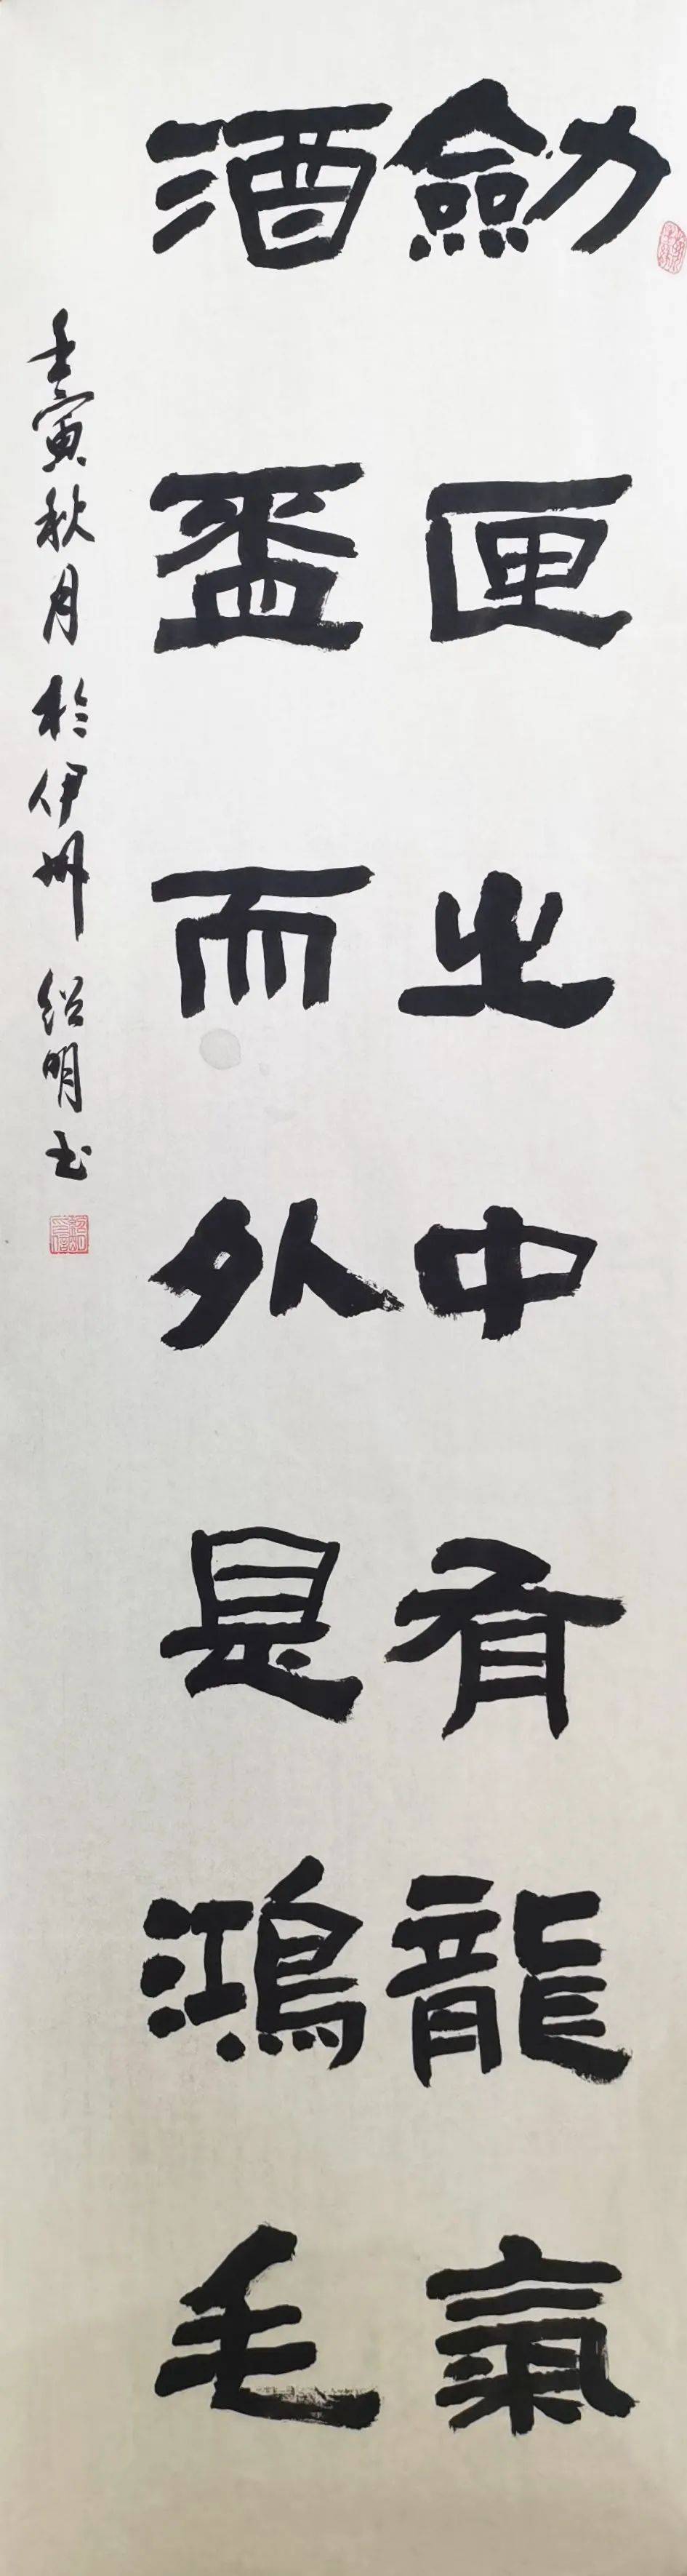 劎匣之中有龍氣
酒盃而外是鴻毛
壬寅秋月於伊州紹明书